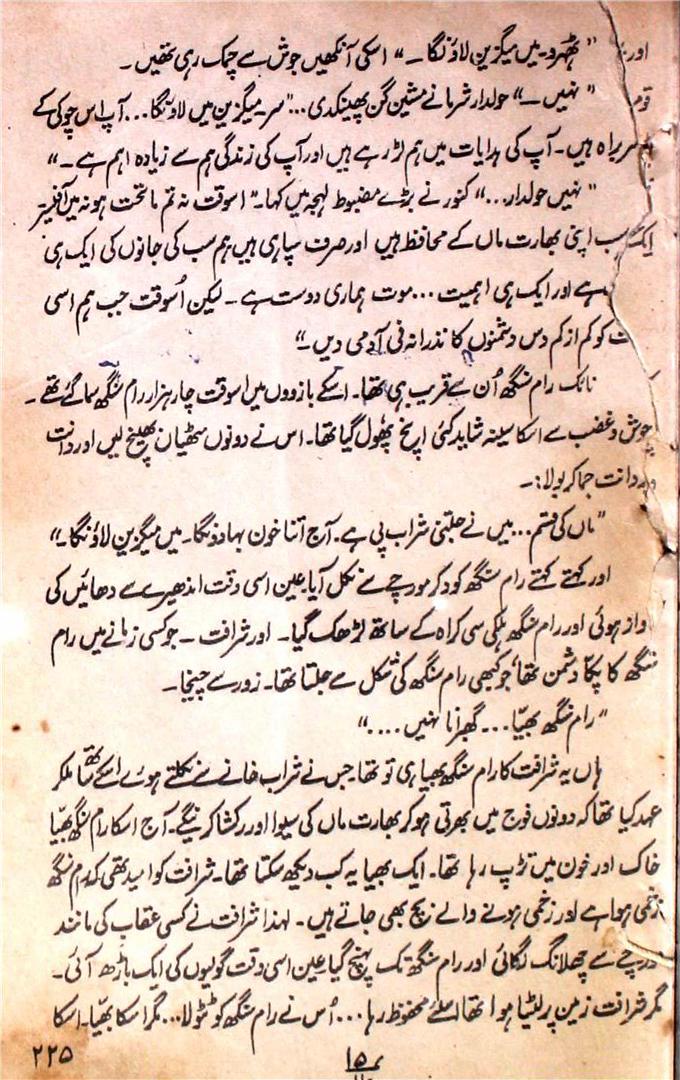 اور " ٹھہرو۔ میں میگزین لاؤنگا۔" اسکی آنکھیں جوش سے چمک رہی تھیں۔
قوم " نہیں۔" حولدار شرما نے مشین گن پھینکدی... "سر۔ میگزین میں لاؤنگا... آپ اس چوکی کے
سربراہ ہیں۔ آپ کی ہدایات میں ہم لڑ رہے ہیں اور آپ کی زندگی ہم سے زیادہ اہم ہے۔"
" نہیں حولدار..." کنور نے بڑے مضبوط لہجہ میں کہا۔" اسوقت نہ تم ماتحت ہو نہ میں آفیسر
سب اپنی بھارت ماں کے محافظ ہیں اور صرف سپاہی ہیں ہم سب کی جانوں کی ایک ہی
ہے اور ایک ہی اہمیت ... موت ہماری دوست ہے۔ لیکن اُسوقت جب ہم اسی
کو کم از کم دس دشمنوں کا نذرانہ فی آدمی دیں۔"
نائک رام سنگھ اُن سے قریب ہی تھا۔ اسکے بازووں میں اسوقت چار ہزار رام سنگھ سما گئے تھے۔
جوش و غضب سے اسکا سینہ شاید کئی انچ پھُول گیا تھا۔ اس نے دونوں مٹھیاں بھینچ لیں اور دانت
دانت جما کر بولا:۔
"ماں کی قسم... میں نے جتنی شراب پی ہے۔ آج اتنا خون بہا دونگا۔ میں میگزین لاؤنگا۔"
اور کہتے کہتے رام سنگھ کود کر مورچے سے نکل آیا عین اسی وقت اندھیرے سے دھائیں کی
آواز ہوئی اور رام سنگھ ہلکی سی کراہ کے ساتھ لڑھک گیا۔ اور شرافت ۔ جو کسی زمانے میں رام
سنگھ کا پکّا دشمن تھا، جو کبھی رام سنگھ کی شکل سے جلتا تھا۔ زور سے چیخا۔
"رام سنگھ بھیّا... گھبرانا نہیں ...."
ہاں یہ شرافت کا رام سنگھ بھیا ہی تو تھا۔ جس نے شراب خانے سے نکلتے ہوئے اسکے ساتھ ملکر
عہد کیا تھا کہ دونوں فوج میں بھرتی ہو کر بھارت ماں کی سیوا اور رکشا کرینگے۔ آج اسکا رام سنگھ بھیّا
خاک اور خون میں تڑپ رہا تھا۔ ایک بھیا یہ کب دیکھ سکتا تھا۔ شرافت کو امید تھی کہ رام سنگھ
زخمی ہوا ہے اور زخمی ہونے والے بچ بھی جاتے ہیں۔ لہذا شرافت نے کسی عقاب کی مانند
مورچے سے چھلانگ لگائی اور رام سنگھ تک پہنچ گیا عین اسی وقت گولیوں کی ایک باڑھ آئی۔
مگر شرافت زمین پر لیٹا ہوا تھا اسلئے محفوظ رہا... اُس نے رام سنگھ کو ٹٹولا... مگر اسکا بھیّا۔ اسکا
۱۵
۲۲۵